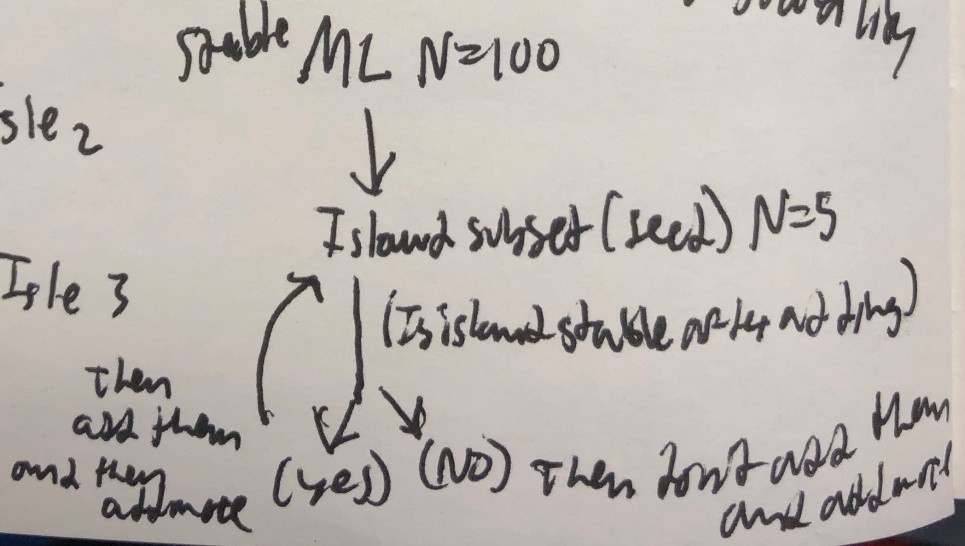 stable ML N=100
sle 2
Island subset (seed) N=5
Isle 3
(Is island stable after adding)
Then
add them
and then
add more
(yes)
(NO) Then dont add them
and add more